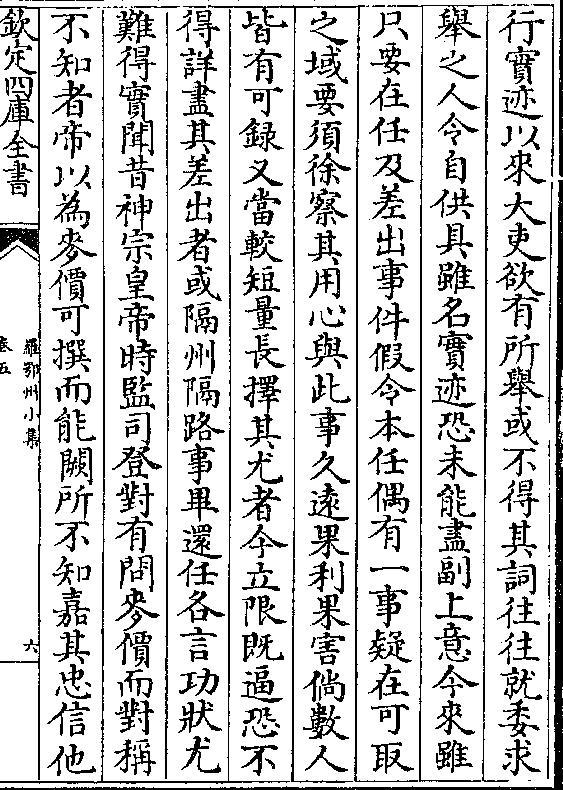 行實迹以來大吏欲有所舉或不得其詞往往就委求
舉之人令自供具雖名實迹恐未能盡副上意今來雖
只要在任及差出事件假令本任偶有一事疑在可取
之域要須徐察其用心與此事久遠果利果害倘數人
皆有可録又當較短量長擇其尤者今立限既逼恐不
得詳盡其差出者或隔州隔路事畢還任各言功狀尤
難得實聞昔神宗皇帝時監司登對有問麥價而對稱
不知者帝以為麥價可撰而能闕所不知嘉其忠信他
欽定四庫全書
羅鄂州小集
卷五
六